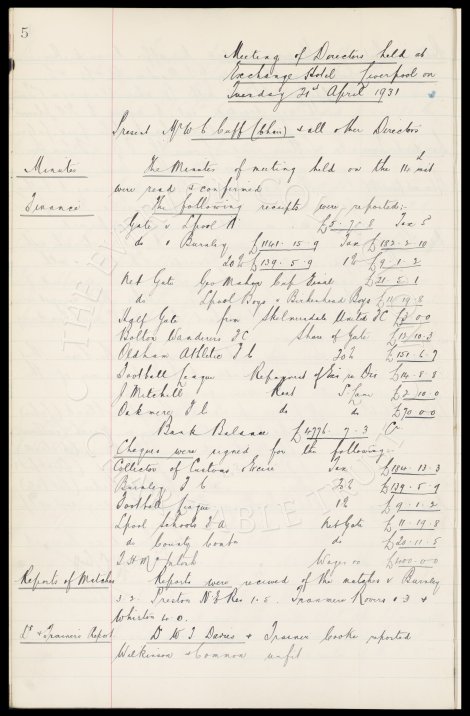 5
Meeting of Directors held at
Exchange Hotel Liverpool on
Tuesday 21st April 1931
Present Mr W C Cuff (Chair) & all other Directors
Minutes The Minutes of meeting held on the 14th inst
were read & confirmed
Finance The following receipts were reported:-
Gate v Lpool A £5. 7. 8 Tax 5
do v Burnley £1141. 15. 9 Tax £182. 2. 10
20% £139. 5. 9 1% £9. 1. 2
Net Gate Geo Mahon Cup Final £21. 5. 1
do Lpool Boys v Birkenhead Boys £11. 19. 8
Half Gate from Skelmersdale United FC £3. 0. 0
Bolton Wanderers F C Share of Gate £13. 10. 3
Oldham Athletic F C 20% £151. 6. 7
Football League Repayment of £14. 8. 8
J Mitchell Rent £2. 10. 0
Oakmere F C do do £70. 0. 0
Bank Balance £4776. 7. 3 Cr
Cheques were signed for the following:-
Collector of Customs & Excise Tax £184. 13. 3
Burnley F C 20% £139. 5. 9
Football League 1% £9. 1. 2
Lpool Schools F A Net Gate £11. 19. 8
do County Comb do £20. 11. 5
T H McIntosh Wages £400. 0. 0
Reports of Matches Reports were received of the matches v Burnley
3 2. Preston N E Res 1. 5. Tranmere Rovers &
Whiston 4. 0.
Dr & Trainers Report Dr W J Davies & Trainer Cooke reported
Wilkinson & Common unfit